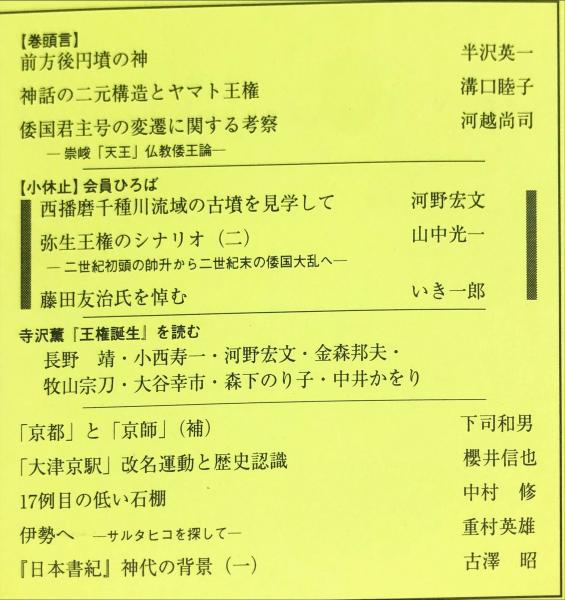 【巻頭言】
前方後円墳の神 半沢英一
神話の二元構造とヤマト王権 溝口睦子
倭国君主号の変遷に関する考察 河越尚司
―崇峻「天王」仏教倭王論―
【小休止】会員ひろば
西播磨千種川流域の古墳を見学して 河野宏文
弥生王権のシナリオ（二） 山中光一
―二世紀初頭の帥升から二世紀末の倭国大乱へ―
藤田友治氏を悼む いき一郎
寺沢薫『王権誕生』を読む
長野　靖・小西寿一・河野宏文・金森邦夫・
牧山宗刀・大谷幸市・森下のり子・中井かをり
「京都」と「京師」（補） 下司和男
「大津京駅」改名運動と歴史認識 櫻井信也
17例目の低い石棚 中村　修
伊勢へ ―サルタヒコを探して― 重村英雄
『日本書紀』神代の背景（一） 古澤　昭